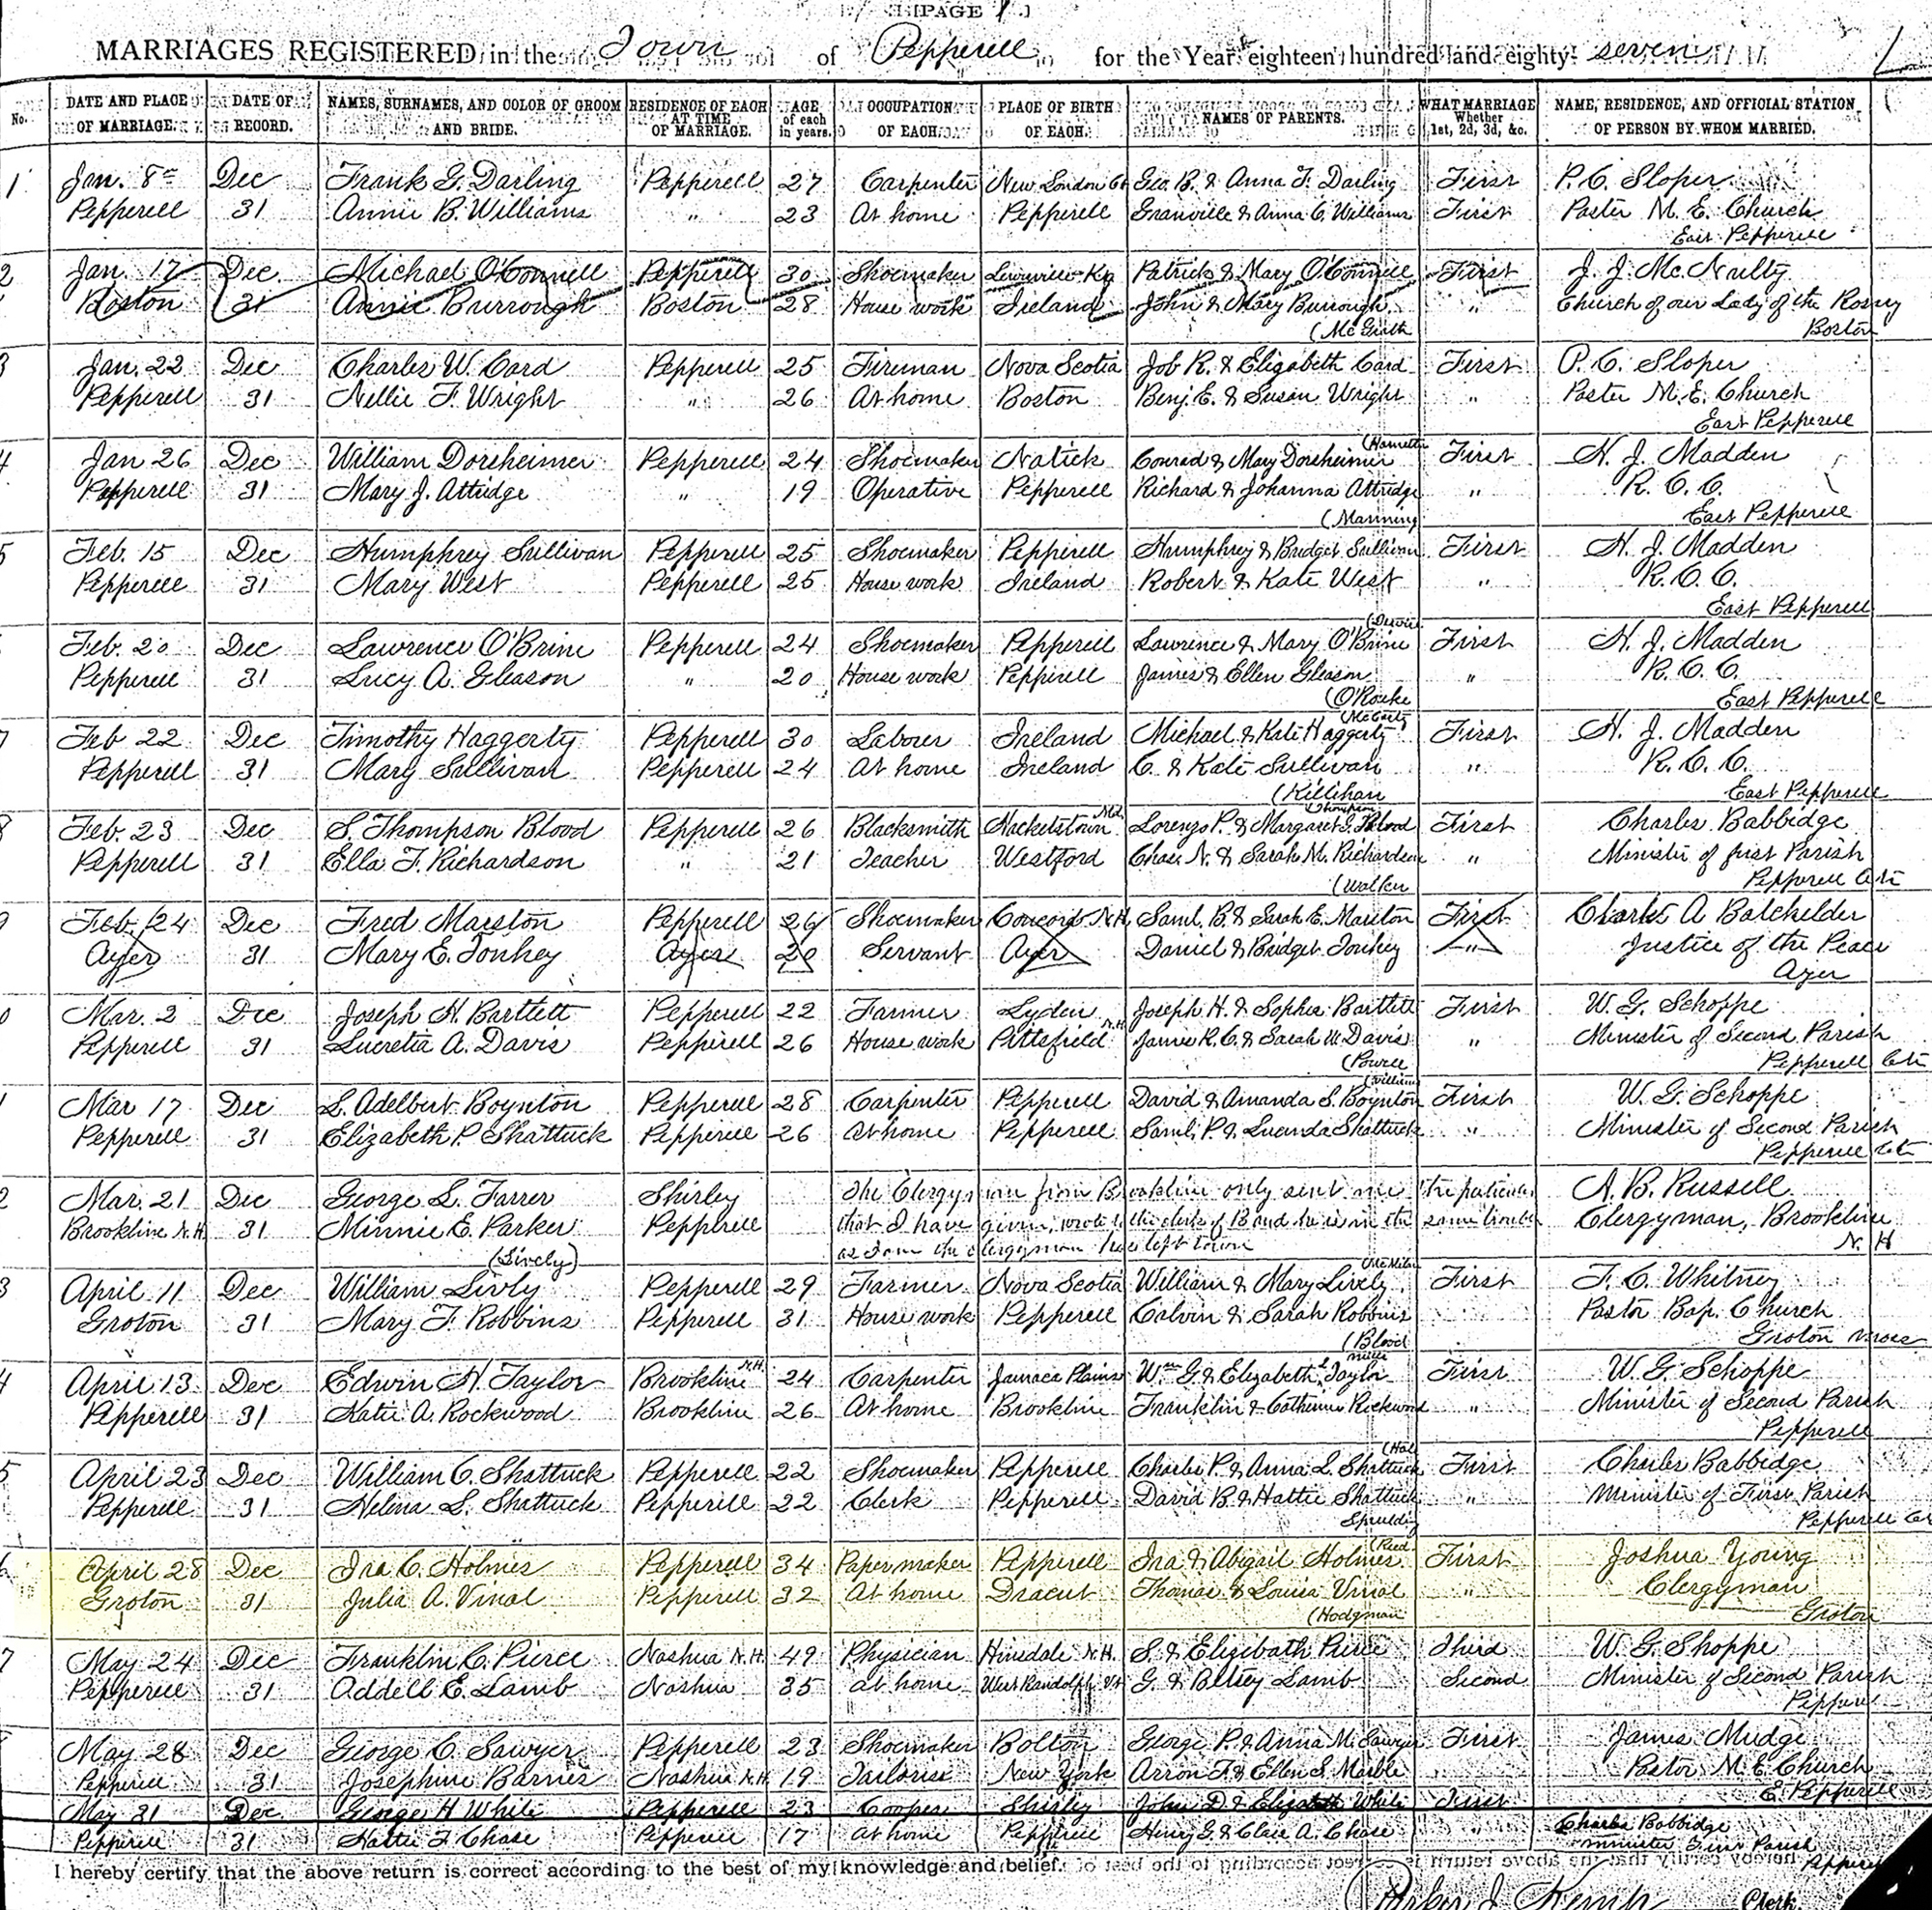 [PAGE 1]
MARRIAGES REGISTERED in the Town of Pepperell for the Year eighteen hundred and eighty-seven
No. DATE AND PLACE OF MARRIAGE. DATE OF RECORD. NAMES, SURNAMES, AND COLOR OF GROOM AND BRIDE. RESIDENCE OF EACH AT TIME OF MARRIAGE. AGE of each in years. OCCUPATION OF EACH. PLACE OF BIRTH OF EACH. NAMES OF PARENTS. WHAT MARRIAGE Whether 1st, 2d, 3d, &c. NAME, RESIDENCE, AND OFFICIAL STATION OF PERSON BY WHOM MARRIED.
1 Jan. 8 Dec Frank G. Darling Pepperell 27 Carpenter New London Ct Geo. B. & Anna F. Darling First P. C. Sloper
Pepperell 31 Annie B. Williams " 23 At home Pepperell Granville & Anna C. Williams First Paster M. E. Church
East Pepperell
2 Jan. 17 Dec. Michael O'Connell Pepperell 30 Shoemaker Louisville Ky Patrick & Mary O'Connell First J. J. McNulty
Boston 31 Annie Burrough Boston 28 House work Ireland John & Mary Burrough " Church of our Lady of the Rosary
(McGrath Boston
3 Jan. 22 Dec Charles W. Card Pepperell 25 Fireman Nova Scotia Job R. & Elizabeth Card First P. C. Sloper
Pepperell 31 Nellie F. Wright " 26 At home Boston Benj. E. & Susan Wright " Paster M. E. Church
East Pepperell
4 Jan 26 Dec William Dorsheimer Pepperell 24 Shoemaker Natick Conrad & Mary Dorsheimer First H. J. Madden
Pepperell 31 Mary J. Attridge " 19 Operative Pepperell Richard & Johanna Attridge " R. C. C.
(Manning East Pepperell
5 Feb. 15 Dec Humphrey Sullivan Pepperell 25 Shoemaker Pepperell Humphrey & Bridget Sullivan First H. J. Madden
Pepperell 31 Mary West Pepperell 25 House work Ireland Robert & Kate West " R. C. C.
East Pepperell
Feb. 20 Dec Lawrence O'Brine Pepperell 24 Shoemaker Pepperell Lawrence & Mary O'Brine First H. J. Madden
Pepperell 31 Lucy A. Gleason " 20 House work Pepperell James & Ellen Gleason " R. C. C.
(O'Rouke East Pepperell
(McCarty
7 Feb 22 Dec Timothy Haggerty Pepperell 30 Laborer Ireland Michael & Kate Haggerty First H. J. Madden
Pepperell 31 Mary Sullivan Pepperell 24 At home Ireland C. & Kate Sullivan " R. C. C.
(Killihan East Pepperell
8 Feb. 23 Dec S. Thompson Blood Pepperell 26 Blacksmith Md. Lorenzo P. & Margaret G. Blood First Charles Babbidge
Pepperell 31 Ella F. Richardson " 21 Teacher Westford Chas. N. & Sarah M. Richardson " Minister of first Parish
(Walker Pepperell
9 Feb. 24 Dec Fred Marston Pepperell 26 Shoemaker Concord N.H. Saml. B. & Sarah E. Marston First Charles A Batchelder
Ayer 31 Mary E. Tonkey Ayer 20 Servant Ayer Daniel & Bridget Tonkey " Justice of the Peace
Ayer
0 Mar. 2 Dec Joseph H. Bartlett Pepperell 22 Farmer Lyden Joseph H. & Sophia Bartlett First W. G. Schoppe
Pepperell 31 Lucretia A. Davis Pepperell 26 House work Pittsfield N.H. James R. C. & Sarah W. Davis " Minister of Second Parish
(Powell Pepperell
(William
1 Mar 17 Dec L. Adelbert Boynton Pepperell 28 Carpenter Pepperell David & Amanda S. Boynton First W. G. Schoppe
Pepperell 31 Elizabeth P. Shattuck Pepperell 26 At home Pepperell Saml. P. & Lucinda Shattuck " Minister of Second Parish
Pepperell
2 Mar. 21 Dec George L. Farrer Shirley The Clergyman from Brookline only sent me the particulars A. B. Russell
Brookline N.H. 31 Minnie E. Parker Pepperell that I have given, wrote to the clerk of B and he is in the same trouble Clergyman, Brookline
as I am the clergyman has left town N. H
(Lively)
3 April 11 Dec William Livly Pepperell 29 Farmer Nova Scotia William & Mary Lively First F. C. Whitney
Groton 31 Mary F. Robbins Pepperell 31 House work Pepperell Calvin & Sarah Robbins " Pastor Bap. Church
(Blood Groton Mass
4 April 13 Dec Edwin H. Taylor Brookline N.H. 24 Carpenter Jamaca Plains Wm G. & Elizabeth Taylor First W. G. Schoppe
Pepperell 31 Katie A. Rockwood Brookline 26 At home Brookline Franklin & Catherine Rockwood " Minister of Second Parish
Pepperell
(Hall
5 April 23 Dec William C. Shattuck Pepperell 22 Shoemaker Pepperell Charles P. & Anna L. Shattuck First Charles Babbidge
Pepperell 31 Helena L. Shattuck Pepperell 22 Clerk Pepperell David B. & Hattie Shattuck " Minister of First Parish
Spaulding Pepperell
(Reed
April 28 Dec Ira C. Holmes Pepperell 34 Paper maker Pepperell Ira & Abigail Holmes First Joshua Young
Groton 31 Julia A. Vinal Pepperell 32 At home Dracut Thomas & Louisa Vinal " Clergyman
(Hodgman Groton
7 May 24 Dec Franklin C. Pierce Nashua N.H. 49 Physician Hinsdale N.H. S. & Elizibath Pierce Third W. G. Shoppe
Pepperell 31 Addell E. Lamb Nashua 35 at home West Randolph Vt G. & Betsey Lamb Second Minister of Second Parish
Pepperell
May 28 Dec George C. Sawyer Pepperell 23 Shoemaker Bolton George P. & Anna M. Sawyer First James Mudge
Pepperell 31 Josephine Barnes Nashua N.H. 19 Tailoress New York Arron F. & Ellen S. Marble Pastor M. E. Church
E. Pepperell
May 31 Dec George H White Pepperell 23 Cooper Shirley John D. & Elizabeth White First
Pepperell 31 Hattie F. Chase Pepperell 17 at home Pepperell Henry G. & Clara A. Chase " Charles Babbidge
Minister First Parish
Pepperell
I hereby certify that the above return is correct according to the best of my knowledge and belief.
Parker J. Kemp Clerk.